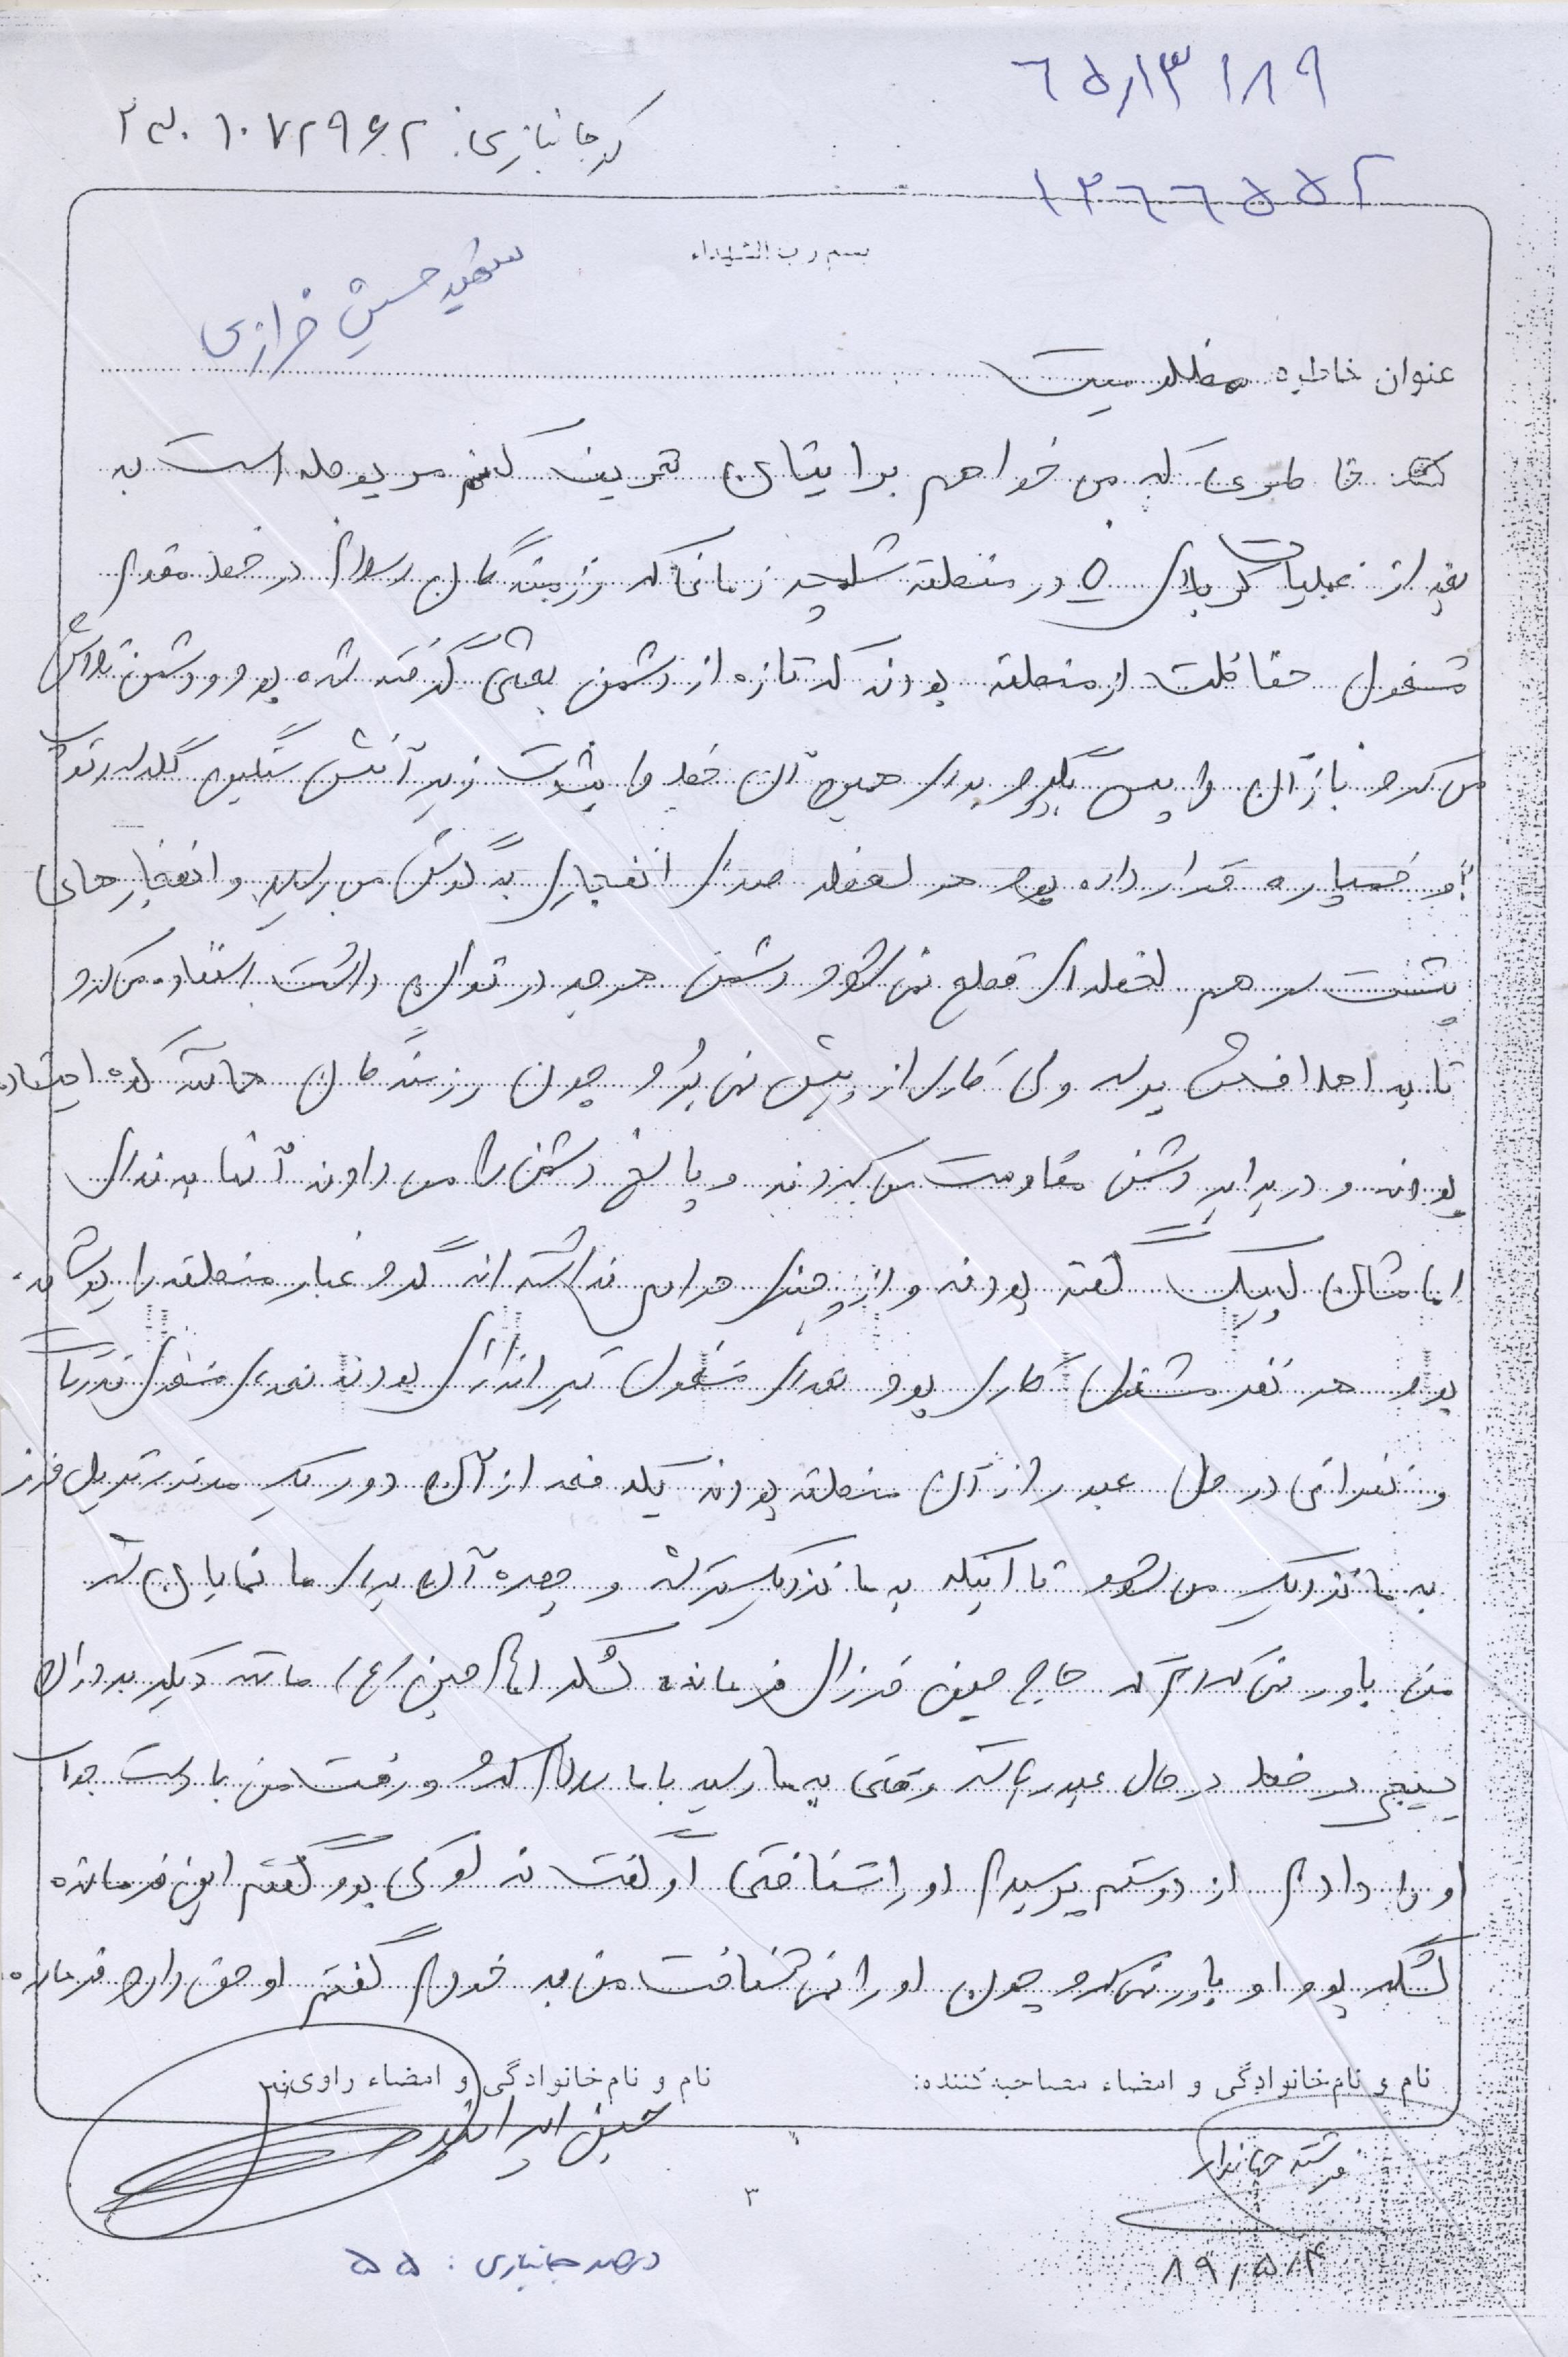 ۶۵/۱۳/۸۹
کد جانبازی: ۲۳۰۱۰۷۲۹۶۲
۱۲۶۶۵۵۲
بسم رب الشهداء
شهید حسین خرازی
عنوان خاطره: مظلومیت
خاطره‌ی که می خواهم برایتان تعریف کنم مربوطه است به
بعد از عملیات کربلای ۵ در منطقه شلمچه زمانی که رزمندگان اسلام در خط مقدم
مشغول حفاظت از منطقه بودند که تازه از دشمن بعثی گرفته شده بود و دشمن تلاش
می کرد باز آن را پس بگیرد برای همین آن خط را بشدت زیر آتش سنگین گلوله توپ
و خمپاره قرار داده بود هر لحظه صدای انفجاری به گوش می رسید و انفجارهای
پشت سر هم لحظه ای قطع نمی شود دشمن هرچه در توان داشت استفاده می کرد
تا به اهدافش برسد ولی کاری از پیش نمی برد چون رزمندگان مانند کوه ایستاده
بودند و در برابر دشمن مقاومت می کردند و پاسخ دشمن را می دادند آنها به ندای
امامشان لبیک گفته بودند و از چیزی هراس نداشته اند گرد و غبار منطقه را پوشانده
بود هر نفر مشغول کاری بود بعدای مشغول تیر اندازی بودند بعدای مشغول تدارکات
و نفراتی در حال عبور از آن منطقه بودند یکدفعه از آن دور یک موتور تریل قرمز
به ما نزدیک می شود تا اینکه به ما نزدیکتر شد و چهره آن برای ما نمایان شد
من باور نمی کردم که حاج حسین خرازی فرمانده لشکر امام حسین (ع) مانند دیگر برادران
بسیجی در خط در حال عبور باشد وقتی به ما رسید با ما سلام کرد و رفت من با دست جواب
او را دادم از دوستم پرسیدم او را شناختی او گفت نه او کی بود گفتم این فرمانده
لشکر بود او باور نمی کرد چون او را نمی شناخت من به خودم گفتم او حق دارد فرمانده
نام و نام خانوادگی و امضاء مصاحبه کننده:
نام و نام خانوادگی و امضاء راوی:
فرشته جهاندار
حسین
۳
۸۹/۵/۴
درصد جانبازی: ۵۵